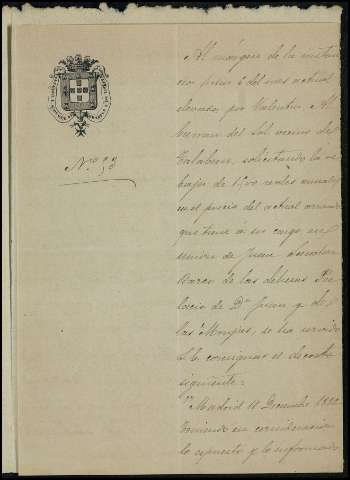 Nº 33
Al márgen de la instan
cia fecha 6 del mes actual
elevada por Valentin Al
berran del Sol vecino de
Calabor, solicitando la re
baja de 1500 reales anuales
en el precio del actual arriendo
que tiene á su cargo, en
union de Juan
Barco de las dehesas Pa
lacio de Dn Juan y de
las Monjas, se ha servido
S.E. consignar el decreto
siguiente:
"Madrid 11 Diciembre
Teniendo en consideracion
lo espuesto y lo informado